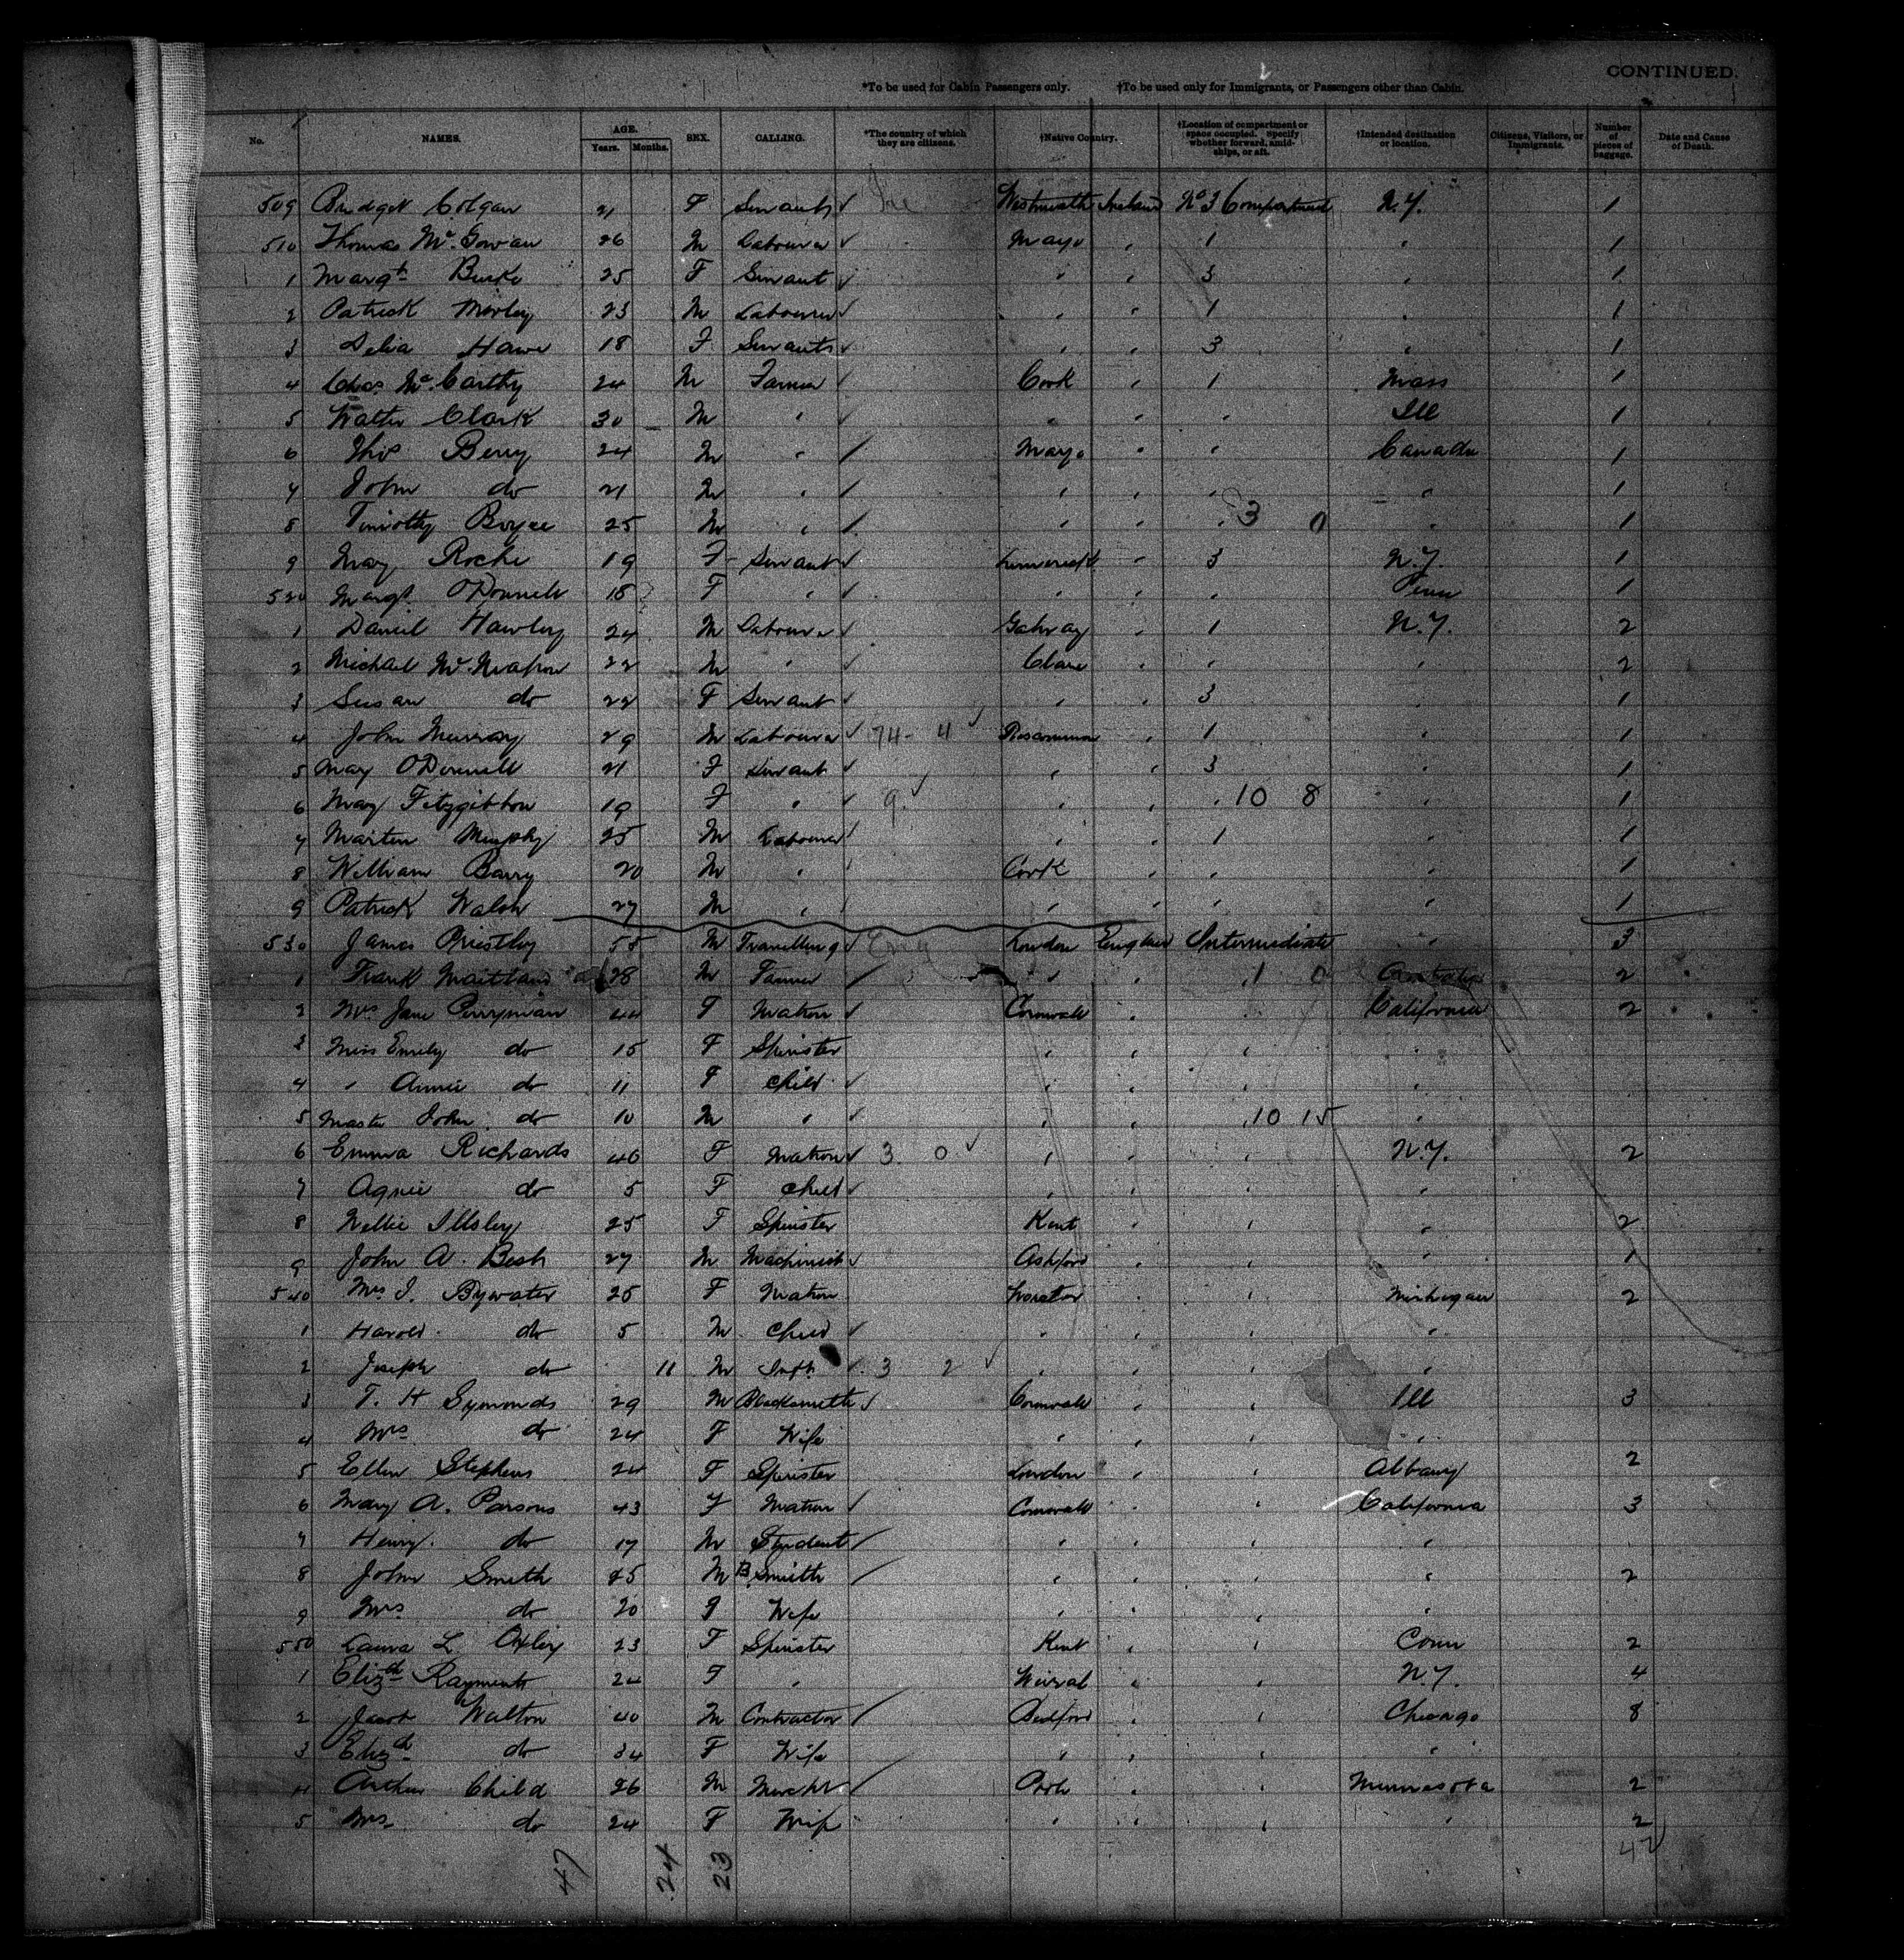 CONTINUED.
*To be used for Cabin Passengers only. †To be used only for Immigrants, or Passengers other than Cabin.
No. NAMES. AGE. Years. Months. SEX. CALLING. *The country of which they are citizens. †Native Country. †Location of compartment or space occupied. Specify whether forward, amidships, or aft. †Intended destination or location. Citizens, Visitors, or Immigrants. Number of pieces of baggage. Date and Cause of Death.
509 Bridget Colgan 21 F Servant ✓ Ire Westmeath Ireland No 3 Compartment N.Y. 1
510 Thomas McGowan 26 M Labourer ✓ Mayo " 1 " 1
1 Margt Burke 25 F Servant ✓ " " 3 " 1
2 Patrick Morley 23 M Labourer ✓ " " 1 " 1
3 Delia Hawe 18 F Servant ✓ " " 3 " 1
4 Chas McCarthy 24 M Farmer ✓ Cork " 1 Mass 1
5 Walter Clark 30 M " ✓ " " " Ill 1
6 Thos Berry 24 M " ✓ Mayo " " Canada 1
7 John do 21 M " ✓ " " " " 1
8 Timothy Boyce 25 M " ✓ " " " 3 0 " 1
9 Mary Roche 19 F Servant ✓ Limerick " 3 N.Y. 1
520 Margt O'Donnell 18 F " ✓ " " " Penn 1
1 Daniel Hawley 24 M Labourer ✓ Galway " 1 N.Y. 2
2 Michael 22 M " ✓ Clare " " " 2
3 Susan do 22 F Servant ✓ " " 3 " 1
4 John Murray 29 M Labourer ✓ 74 - 4 ✓ Roscommon " 1 " 1
5 Mary O'Donnell 21 F Servant ✓ " " 3 " 1
6 Mary Fitzgibbon 19 F " ✓ 9 ✓ " " " 10 8 " 1
7 Martin Murphy 25 M Labourer ✓ " " 1 " 1
8 William Barry 20 M " ✓ Cork " " " 1
9 Patrick Walsh 27 M " ✓ " " " " 1
530 James Priestley 55 M Travelling ✓ Eng London England Intermediate " 3
1 Frank Maitland 28 M Farmer ✓ " " " 1 0 2
2 Mrs Jane Perryman 44 F Matron ✓ Cornwall " " California 2
3 Miss Emily do 15 F Spinster " " " "
4 " Annie do 11 F Child ✓ " " " "
5 Master John do 10 M " ✓ " " " 10 15 "
6 Emma Richards 46 F Matron ✓ 3 0 ✓ " " " N.Y. 2
7 Agnes do 5 F Child ✓ " " " "
8 Nellie Illsley 25 F Spinster Kent " " " 2
9 John A. Best 27 M Machinist ✓ Ashford " " " 1
540 Mrs J. Bywater 25 F Matron " " Michigan 2
1 Harold do 5 M Child ✓ " " " "
2 Joseph do 11 M Inft ✓ 3 2 ✓ " " " "
3 T. H Symonds 29 M Blacksmith ✓ Cornwall " " Ill 3
4 Mrs do 24 F Wife " " " "
5 Ellen Stephens 24 F Spinster London " " Albany 2
6 Mary A. Parsons 43 F Matron ✓ Cornwall " " California 3
7 Henry do 17 M Student ✓ " " " "
8 John Smith 25 M B Smith ✓ " " " " 2
9 Mrs do 20 F Wife " " " "
550 Laura L Oxley 23 F Spinster Kent " " Conn 2
1 Elizth Rayment 24 F " Wirral " " N.Y. 4
2 Jacob Walton 40 M Contractor ✓ Bedford " " Chicago 8
3 Elizth do 34 F Wife " " " "
4 Arthur Child 26 M Mercht ✓ " " Minnesota 2
5 Mrs do 24 F Wife " " " " 2
47 24 23 47